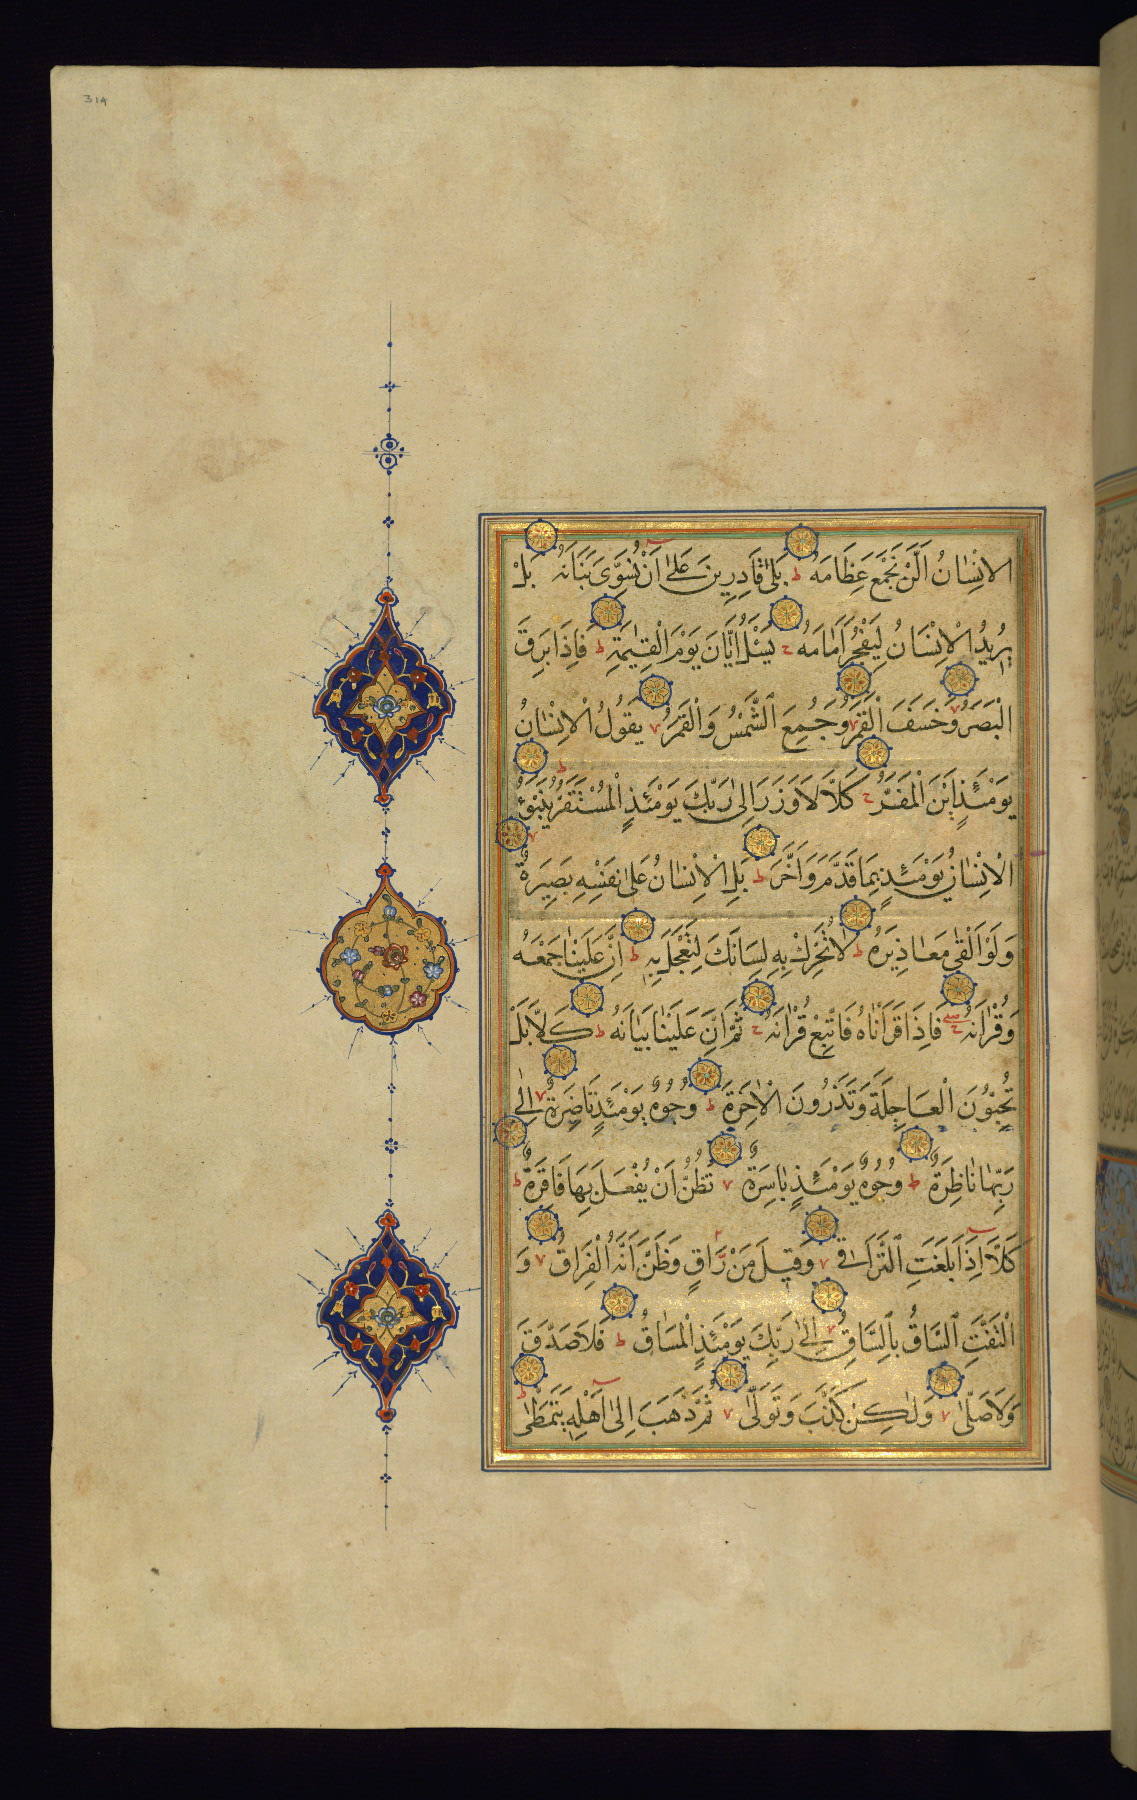 الْاِنْسَانُ اَلَّنْ نَجْمَعَ عِظَامَهُ ط بَلٰى قَادِرِينَ عَلٰى اَنْ نُسَوِّىَ بَنَانَهُ بَلْ
يُرِيدُ الْاِنْسَانُ لِيَفْجُرَ اَمَامَهُ ج يَسْئَلُ اَيَّانَ يَوْمُ الْقِيٰمَةِ ط فَاِذَا بَرِقَ
الْبَصَرُ ٧ وَخَسَفَ الْقَمَرُ ٧ وَجُمِعَ الشَّمْسُ وَالْقَمَرُ ٧ يَقُولُ الْاِنْسَانُ
يَوْمَئِذٍ اَيْنَ الْمَفَرُّ ج كَلَّا لَا وَزَرَ اِلٰى رَبِّكَ يَوْمَئِذٍ الْمُسْتَقَرُّ ط يُنَبَّؤُا
الْاِنْسَانُ يَوْمَئِذٍ بِمَا قَدَّمَ وَاَخَّرَ ط بَلِ الْاِنْسَانُ عَلٰى نَفْسِهِ بَصِيرَةٌ ٧
وَلَوْ اَلْقٰى مَعَاذِيرَهُ ط لَا تُحَرِّكْ بِهِ لِسَانَكَ لِتَعْجَلَ بِهِ ط اِنَّ عَلَيْنَا جَمْعَهُ
وَقُرْاٰنَهُ فَاِذَا قَرَاْنَاهُ فَاتَّبِعْ قُرْاٰنَهُ ج ثُمَّ اِنَّ عَلَيْنَا بَيَانَهُ ط كَلَّا بَلْ
تُحِبُّونَ الْعَاجِلَةَ وَتَذَرُونَ الْاٰخِرَةَ ط وُجُوهٌ يَوْمَئِذٍ نَاضِرَةٌ ٧ اِلٰى
رَبِّهَا نَاظِرَةٌ ط وُجُوهٌ يَوْمَئِذٍ بَاسِرَةٌ ٧ تَظُنُّ اَنْ يُفْعَلَ بِهَا فَاقِرَةٌ ط
كَلَّا اِذَا بَلَغَتِ التَّرَاقِىَ ٧ وَقِيلَ مَنْ رَاقٍ وَظَنَّ اَنَّهُ الْفِرَاقُ ٧ وَ
الْتَفَّتِ السَّاقُ بِالسَّاقِ ٧ اِلٰى رَبِّكَ يَوْمَئِذٍ الْمَسَاقُ ط فَلَا صَدَّقَ
وَلَا صَلّٰى ٧ وَلٰكِنْ كَذَّبَ وَتَوَلّٰى ٧ ثُمَّ ذَهَبَ اِلٰى اَهْلِهِ يَتَمَطّٰى ط